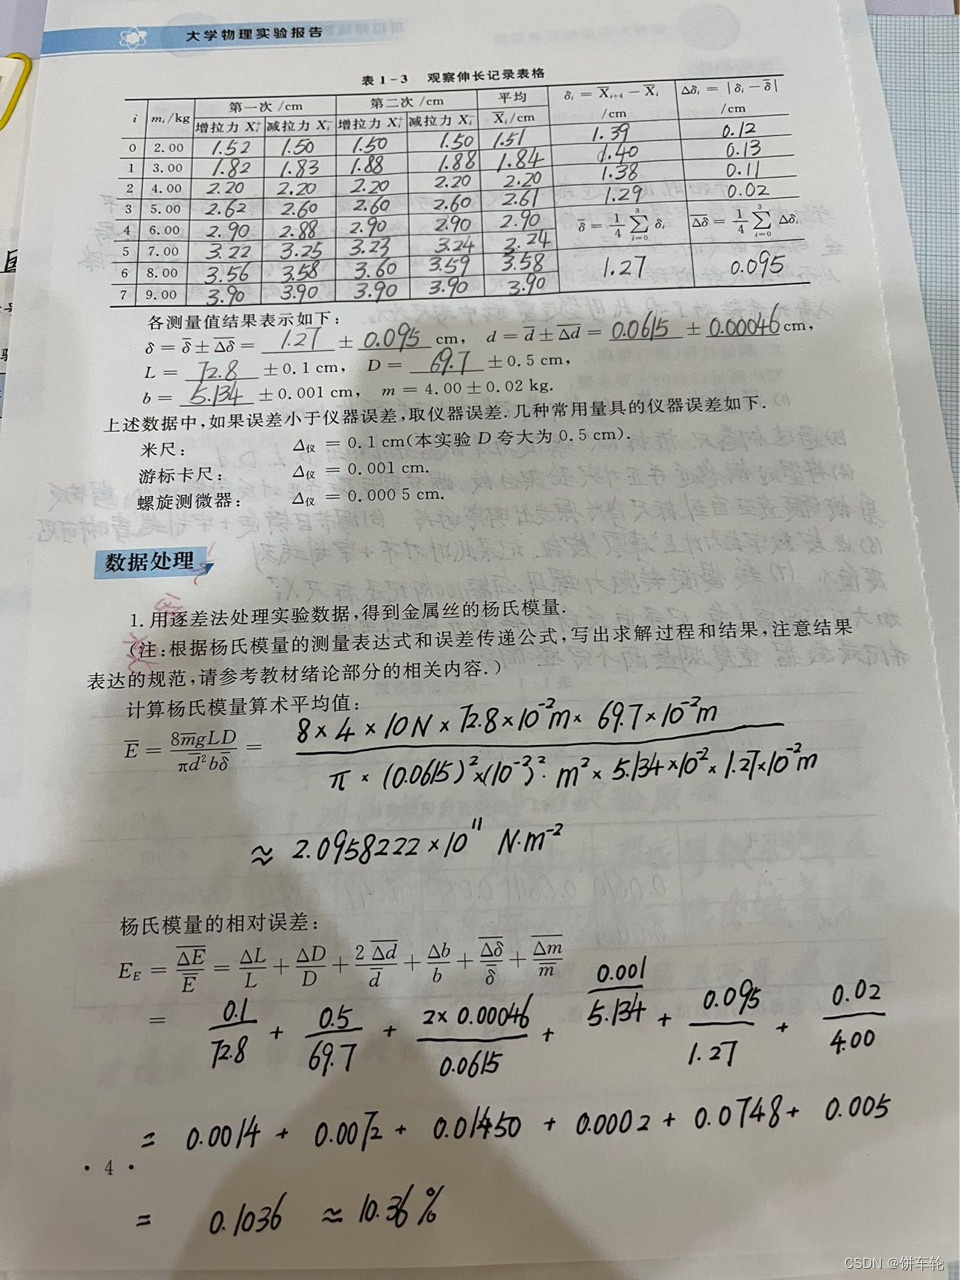 大学物理实验报告
表 1-3 观察伸长记录表格
i mᵢ/kg 第一次/cm 第二次/cm 平均 X̅ᵢ/cm δᵢ = X̅ᵢ₊₄ − X̅ᵢ /cm Δδᵢ = |δᵢ − δ̅| /cm
增拉力 Xᵢ⁺ 减拉力 Xᵢ⁻ 增拉力 Xᵢ⁺ 减拉力 Xᵢ⁻
0 2.00 1.52 1.50 1.50 1.50 1.51 1.39 0.12
1 3.00 1.82 1.83 1.88 1.88 1.84 1.40 0.13
2 4.00 2.20 2.20 2.20 2.20 2.20 1.38 0.11
3 5.00 2.62 2.60 2.60 2.60 2.61 1.29 0.02
4 6.00 2.90 2.88 2.90 2.90 2.90 δ̅ = 1/4 Σ³ᵢ₌₀ δᵢ Δδ̅ = 1/4 Σ³ᵢ₌₀ Δδᵢ
5 7.00 3.22 3.25 3.23 3.24 3.24
6 8.00 3.56 3.58 3.60 3.59 3.58 1.27 0.095
7 9.00 3.90 3.90 3.90 3.90 3.90
各测量值结果表示如下:
δ = δ̅ ± Δδ̅ = 1.27 ± 0.095 cm, d = d̅ ± Δd̅ = 0.0615 ± 0.00046 cm,
L = 72.8 ± 0.1 cm, D = 69.7 ± 0.5 cm,
b = 5.134 ± 0.001 cm, m = 4.00 ± 0.02 kg.
上述数据中,如果误差小于仪器误差,取仪器误差.几种常用量具的仪器误差如下.
米尺: Δ仪 = 0.1 cm(本实验 D 夸大为 0.5 cm).
游标卡尺: Δ仪 = 0.001 cm.
螺旋测微器: Δ仪 = 0.000 5 cm.
数据处理
1. 用逐差法处理实验数据,得到金属丝的杨氏模量.
(注:根据杨氏模量的测量表达式和误差传递公式,写出求解过程和结果,注意结果
表达的规范,请参考教材绪论部分的相关内容.)
计算杨氏模量算术平均值:
E̅ = 8m̅gLD / πd̅²bδ̅ = 8×4×10N×72.8×10⁻²m×69.7×10⁻²m / π×(0.0615)²×(10⁻²)²·m²×5.134×10⁻²×1.27×10⁻²m
≈ 2.0958222×10¹¹ N·m⁻²
杨氏模量的相对误差:
E_E = ΔE̅/E̅ = ΔL/L + ΔD/D + 2Δd̅/d̅ + Δb/b + Δδ̅/δ̅ + Δm̅/m̅
= 0.1/72.8 + 0.5/69.7 + 2×0.00046/0.0615 + 0.001/5.134 + 0.095/1.27 + 0.02/4.00
= 0.0014 + 0.0072 + 0.01450 + 0.0002 + 0.0748 + 0.005
· 4 ·
= 0.1036 ≈ 10.36%
CSDN @饼车轮